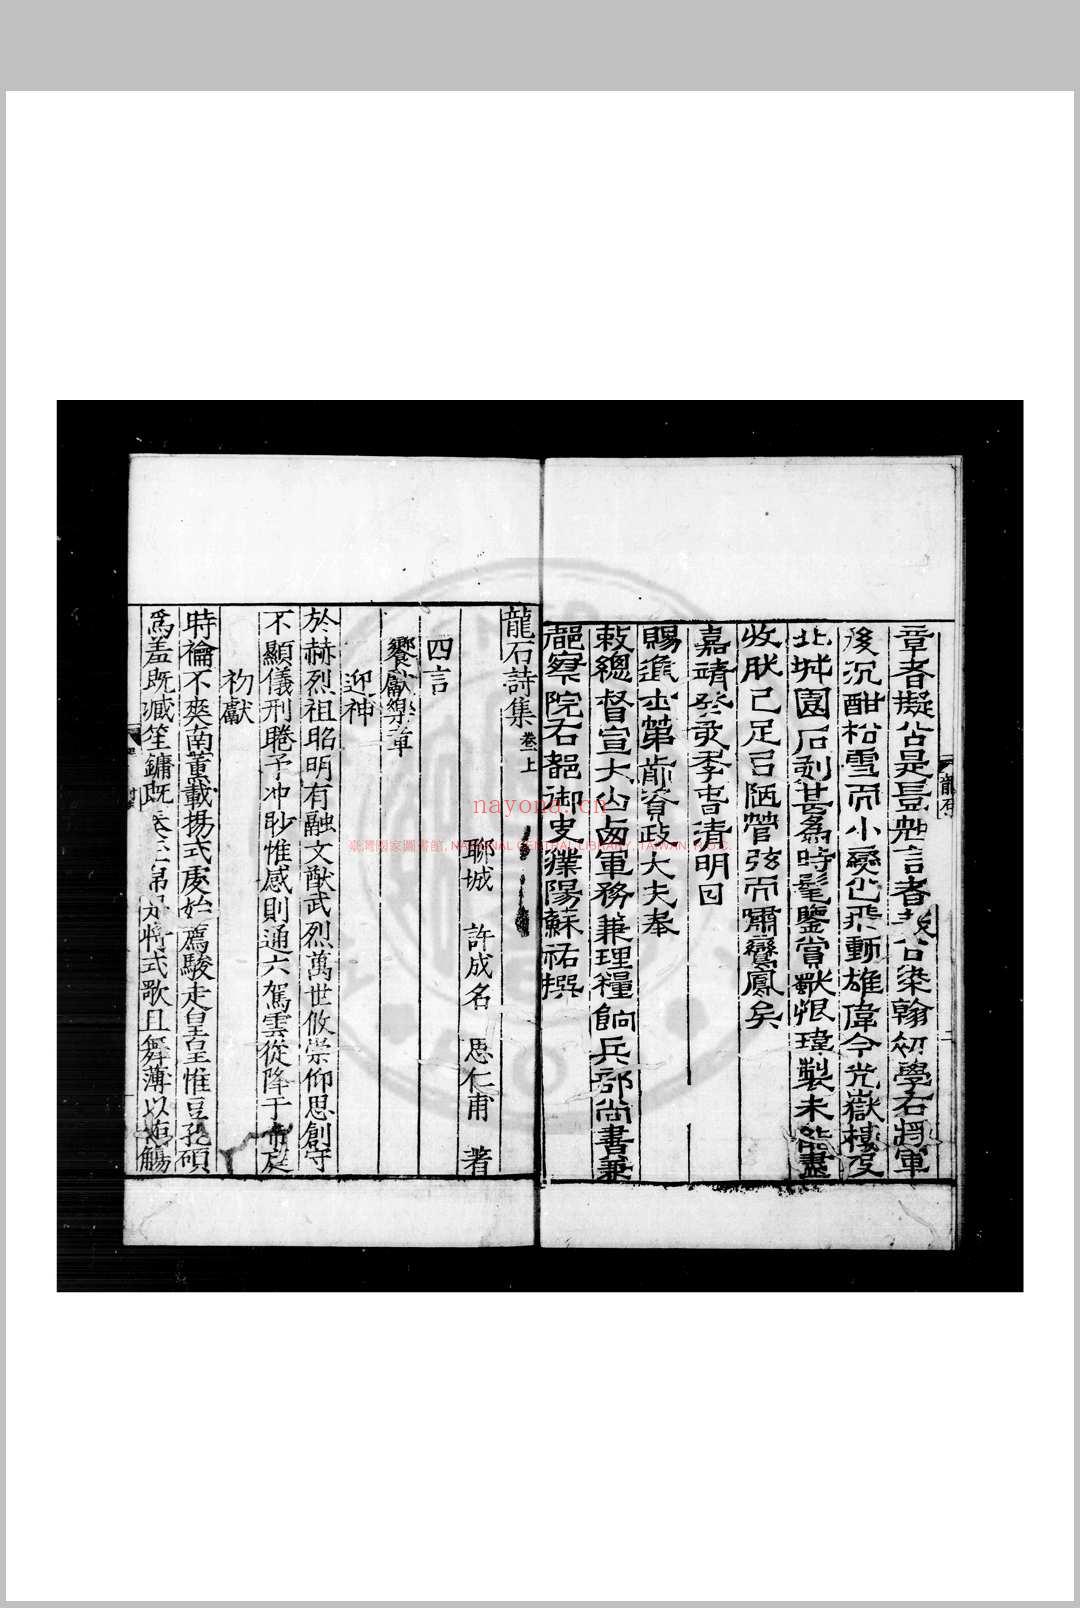 章者擬公是豈知言者哉公染翰初學右將軍
後沉酣松雪而小變化飛動雄偉今光嶽樓及
北城園石刻甚為時髦鑒賞獨恨瑋製未能盡
收肰已足召陋管弦而嘯鸞鳳矣
嘉靖癸亥季春清明日
賜進士第前資政大夫奉
敕總督宣大山西軍務兼理糧餉兵部尚書兼
都察院右都御史濮陽蘇祐撰
龍石
二
龍石詩集卷上
聊城 許成名 思仁甫 著
四言
饗獻樂章
迎神
於赫烈祖昭明有融文猷武烈萬世攸崇仰思創守
不顯儀刑睠予冲眇惟感則通六駕雲從降于帝庭
初獻
時禴不爽南薰載揚式虔始薦駿走皇皇惟豆孔碩
為羞既臧笙鏞既 將式歌且舞薄以 觴
nayona.cn
臺灣國家圖書館, NATIONAL CENTRAL LIBRARY, TAIWAN, R.O.C.